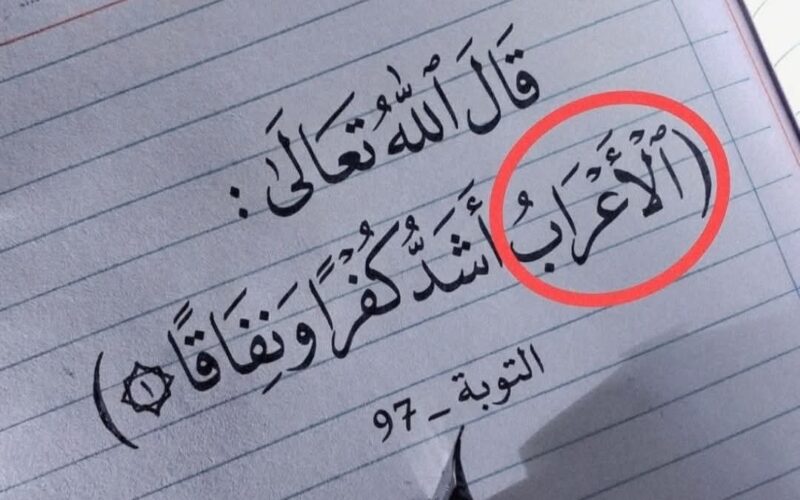 قَالَ ٱللَّهُ تَعَالَىٰ :
(ٱلْأَعْرَابُ أَشَدُّ كُفْرًا وَنِفَاقًا ۝١)
التوبة - 97